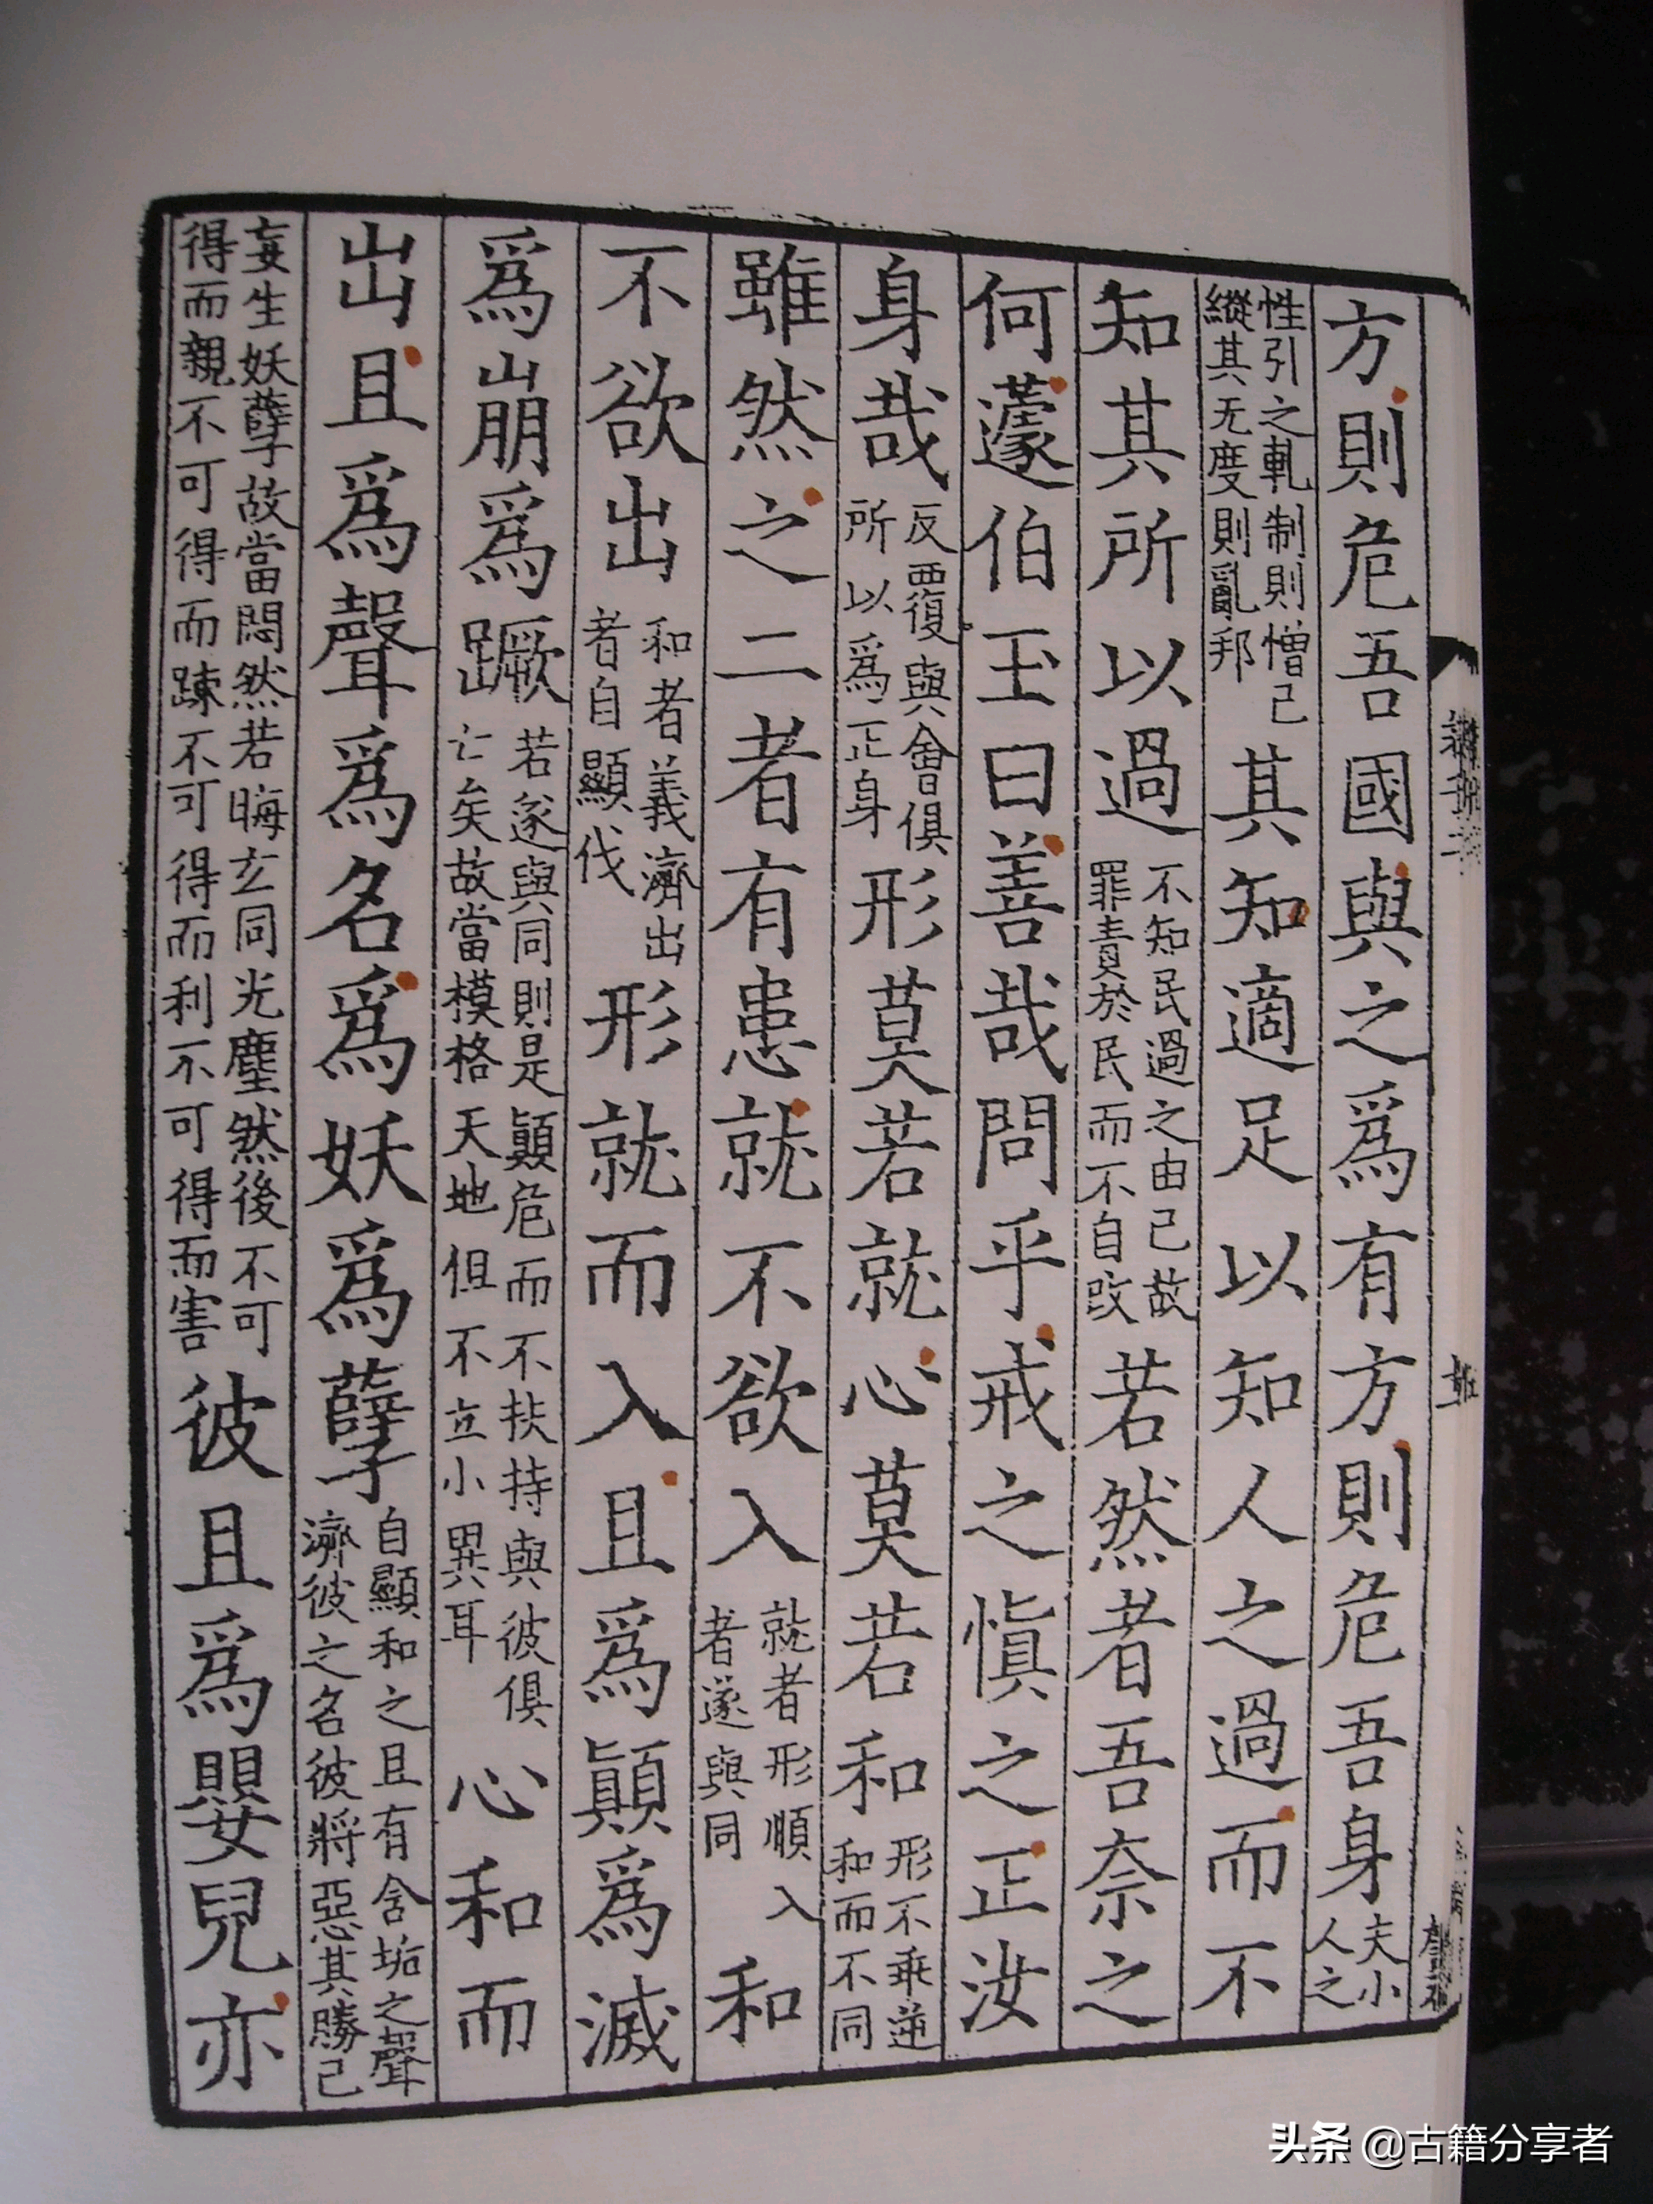 方則危吾國與之爲有方則危吾身夫小人之
性引之軌制則憎己縱其无度則亂邦其知適足以知人之過而不
知其所以過不知民過之由己故罪責於民而不自改若然者吾奈之
何蘧伯玉曰善哉問乎戒之愼之正汝
身哉反覆與會俱所以爲正身形莫若就心莫若和形不乖迕和而不同
雖然之二者有患就不欲入就者形順入者遂與同和
不欲出和者義濟出者自顯伐形就而入且爲顚爲滅
爲崩爲蹶若遂與同則是顚危而不扶持與彼俱亡矣故當模格天地但不立小異耳心和而
出且爲聲爲名爲妖爲孽自顯和之且有含垢之聲濟彼之名彼將惡其勝己
妄生妖孽故當悶然若晦玄同光塵然後不可得而親不可得而踈不可得而利不可得而害彼且爲嬰兒亦
头条 @古籍分享者